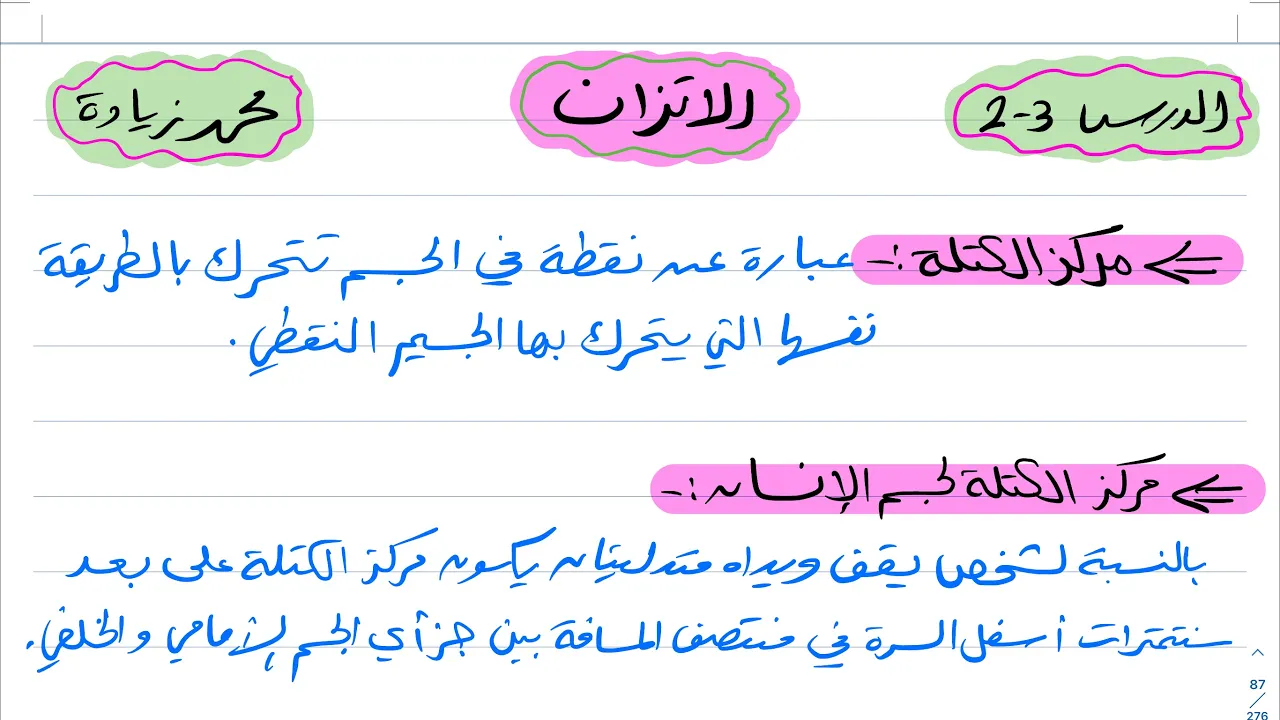 الدرس 3-2
الاتزان
محمد زيادة
مركز الكتلة :- عبارة عن نقطة في الجسم تتحرك بالطريقة
نفسها التي يتحرك بها الجسيم النقطي .
مركز الكتلة لجسم الإنسان :-
بالنسبة لشخص يقف ويداه متدليتان يكون مركز الكتلة على بعد
سنتمترات أسفل السرة في منتصف المسافة بين جزأي الجسم الأمامي والخلفي .
87
276